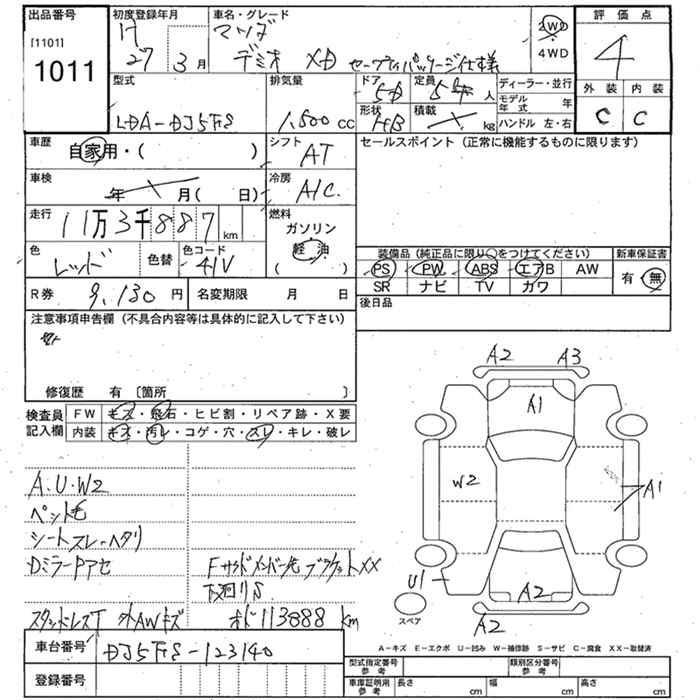 出品番号
[1101]
1011
初度登録年月
H
27 3 月
車名・グレード
マツダ
デミオ XD セーフティパッケージ仕様
2WD
4WD
評価点
4
外装 内装
C C
型式
LDA-DJ5FS
排気量
1,500 cc
ドア
5D
定員
5 人
形状
HB
積載
kg
ディーラー・並行
モデル年式 年
ハンドル 左・右
車歴
自家用・( )
シフト
AT
セールスポイント (正常に機能するものに限ります)
車検
年 月( 日)
冷房
A/C
走行
11万3千887 km
燃料
ガソリン
軽油
( )
色
レッド
色替
色コード
41V
装備品 (純正品に限り○をつけてください)
新車保証書
PS PW ABS エアB AW
有・無
SR ナビ TV カワ
R券
9,130 円
名変期限 月 日
後日品
注意事項申告欄 (不具合内容等は具体的に記入して下さい)
修復歴 有 〔箇所 〕
検査員記入欄
FW キズ・飛石・ヒビ割・リペア跡・X要
内装 キズ・汚レ・コゲ・穴・スレ・キレ・破レ
A.U.W2
ペット毛
シートスレ・ヘタリ
DミラーPアセ
Fサイドメンバー先ブラケットXX
下廻りS
スタッドレスT 外AWキズ
オド113888 km
A2 A3
A1
W2
A1
U1
A2
A2
スペア
A-キズ E-エクボ U-凹み W-補修跡 S-サビ C-腐食 XX-取替済
車台番号
DJ5FS-123140
登録番号
型式指定番号 参考
類別区分番号 参考
車庫証明用 参考
長さ cm
幅 cm
高さ cm